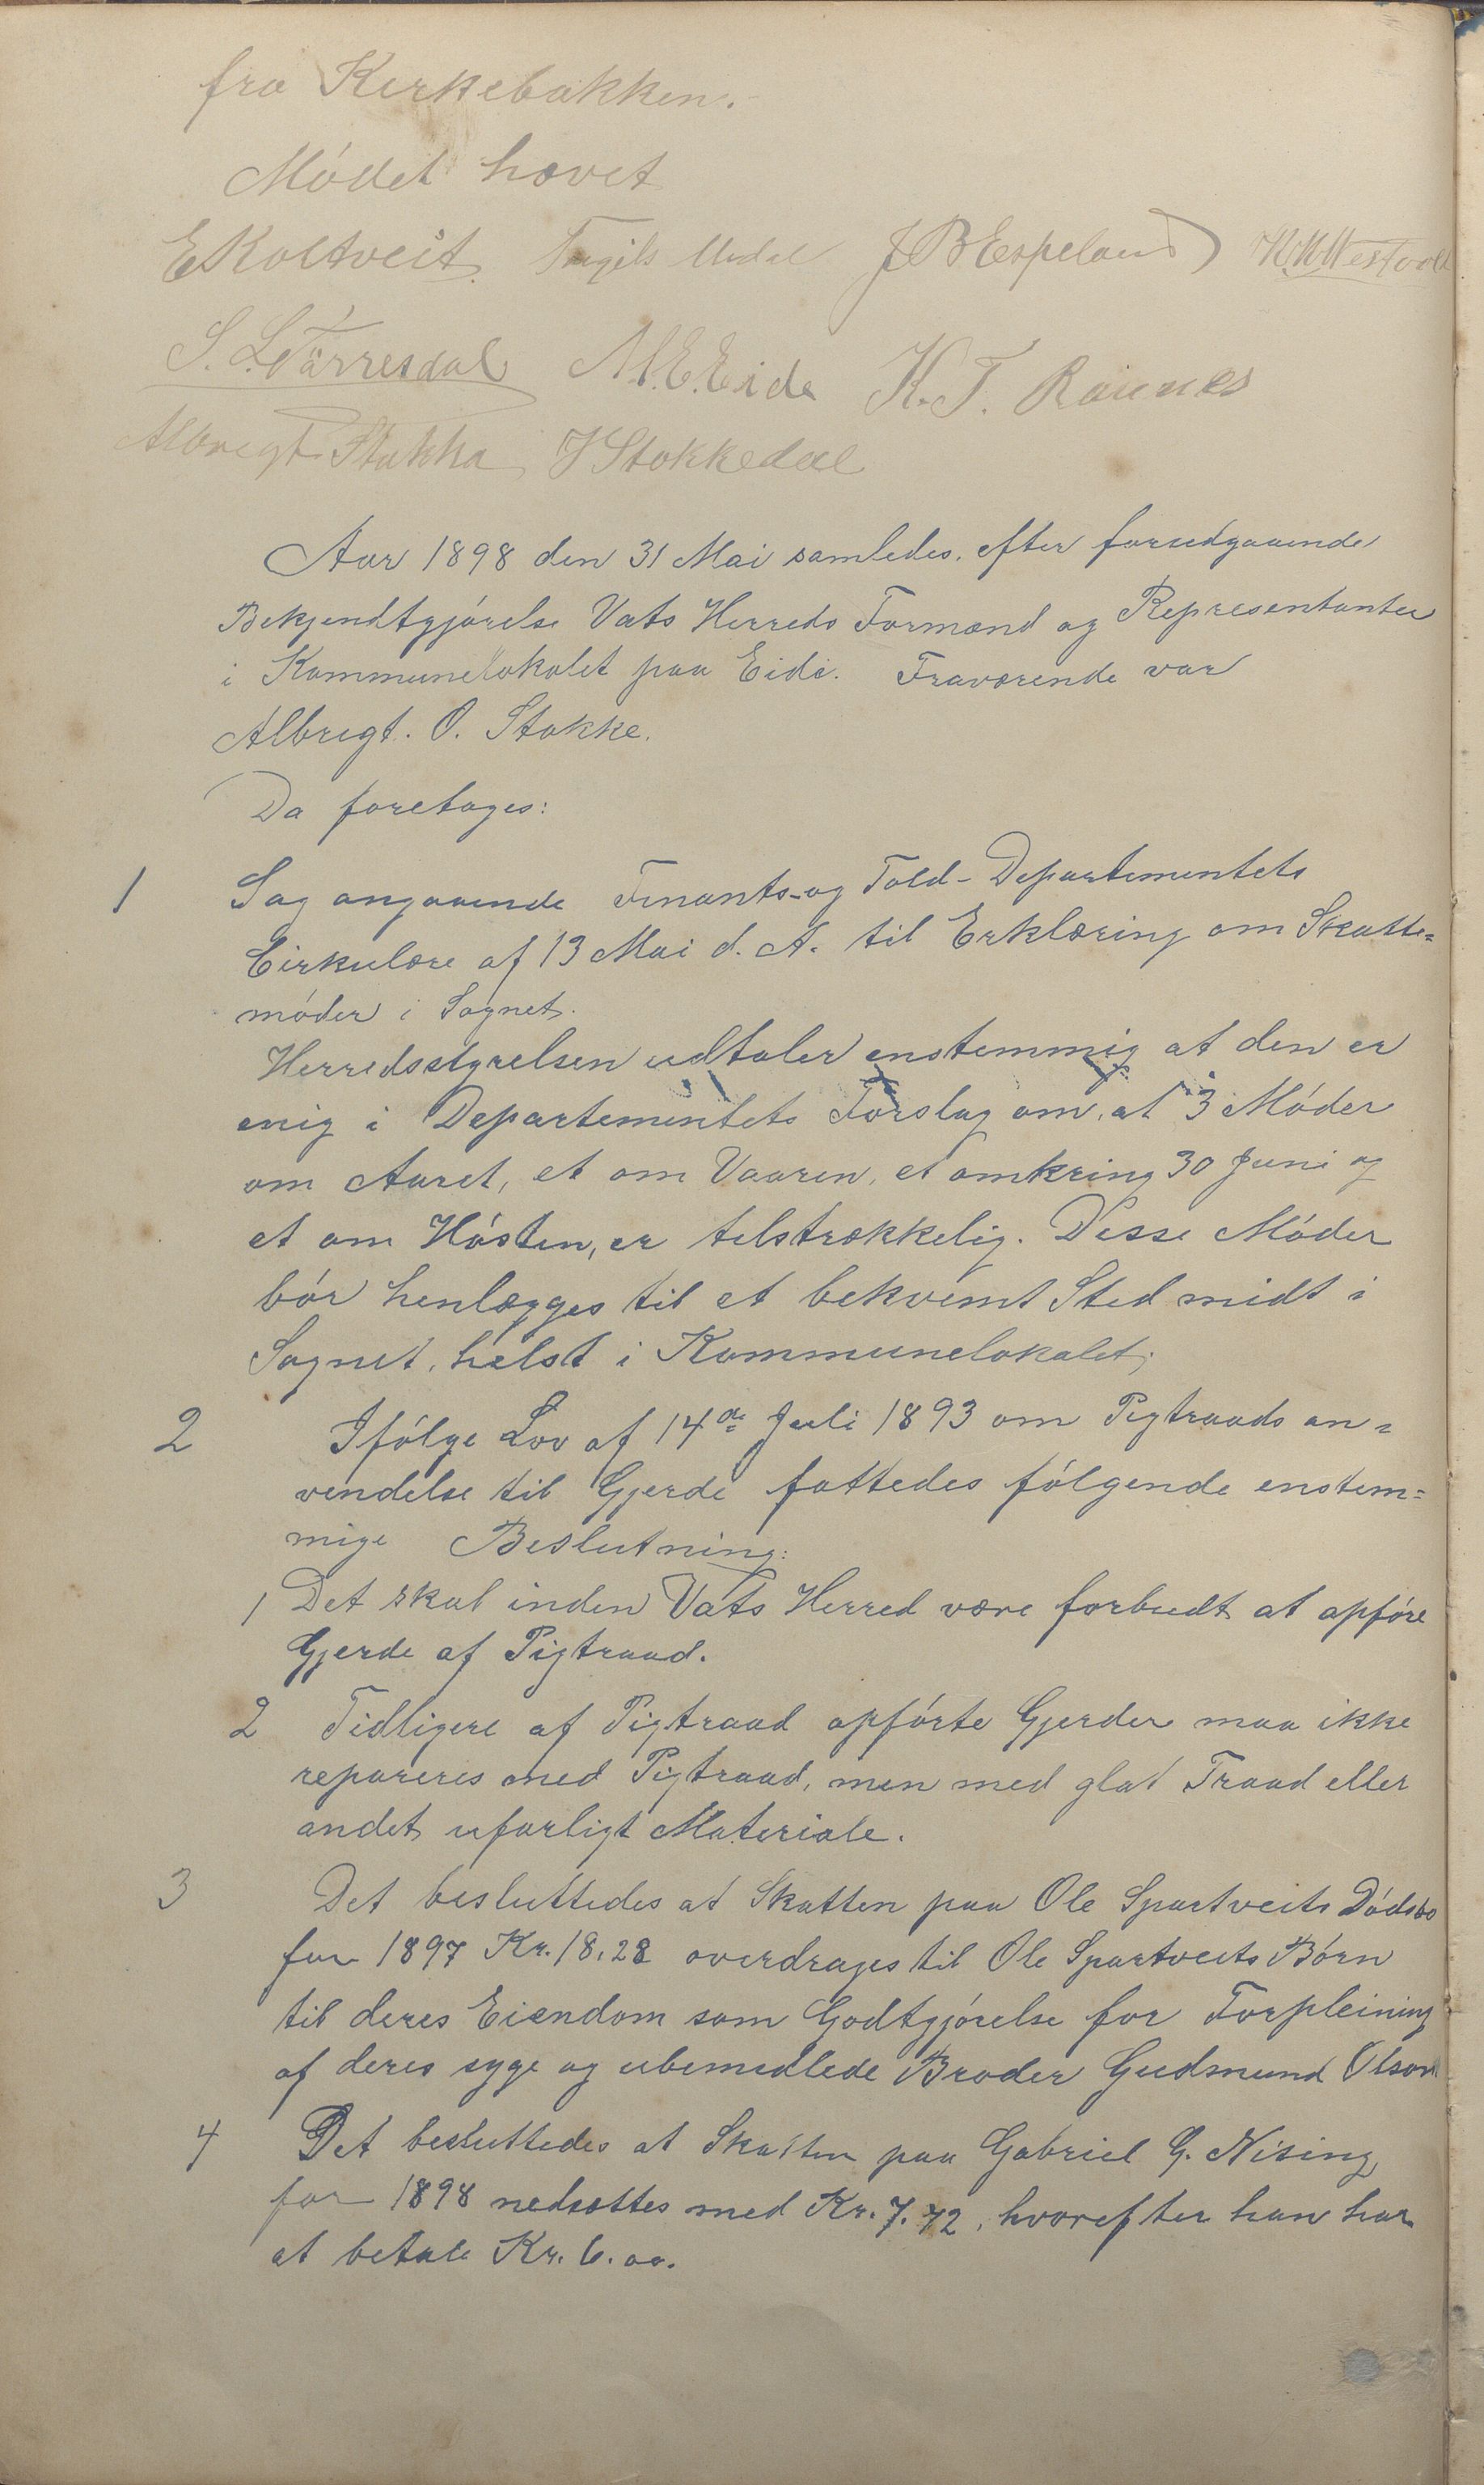 fra Kirkebakken.
Mödet hævet
E Koltveit. Torgils Undal J B Espeland K. K. Westvold
S. L. Törresdal M. E. Eide K. T. Raunes
Albregt Stakka J Stokkedal
Aar 1898 den 31 Mai samledes, efter forudgaaende
Bekjendtgjörelse Vats Herreds Formænd og Representanter
i Kommunelokalet paa Eide. Fraværende var
Albregt. O. Stakke.
Da foretages:
1 Sag angaaende Finants- og Told-Departementets
Cirkulære af 13 Mai d. A. til Erklæring om Skatte=
möder i Sognet.
Herredsstyrelsen udtaler enstemmig at den er
enig i Departementets Forslag om, at 3 Möder
om Aaret, et om Vaaren, et omkring 30 Juni og
et om Hösten, er tilstrækkelig. Disse Möder
bör henlægges til et bekvemt Sted midt i
Sognet, helst i Kommunelokalet;
2 Ifölge Lov af 14de Juli 1893 om Pigtraads an=
vendelse til Gjerde fattedes fölgende enstem=
mige Beslutning:
1 Det skal inden Vats Herred være forbudt at opföre
Gjerde af Pigtraad.
2 Tidligere af Pigtraad opförte Gjerder maa ikke
repareres med Pigtraad, men med glat Traad eller
andet ufarligt Materiale.
3 Det besluttedes at Skatten paa Ole Spartveits Dödsbo
for 1897 Kr. 18,28 overdrages til Ole Spartveits Börn
til deres Eiendom som Godtgjörelse for Forpleining
af deres syge og ubemidlede Broder Gudmund Olson
4 Det besluttedes at Skatten paa Gabriel G. Nising
for 1898 nedsættes med Kr. 7.72, hvorefter han har
at betale Kr. 6.00.